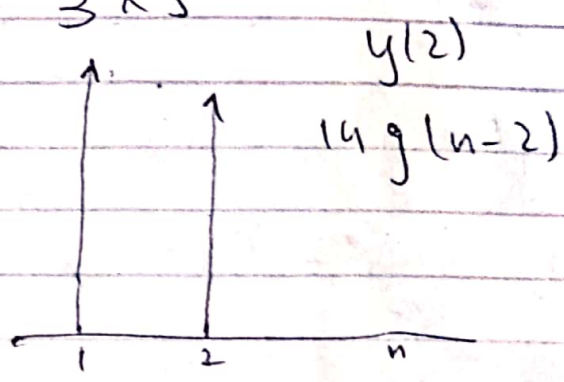 y(2)
14 g(n-2)
1 2 n